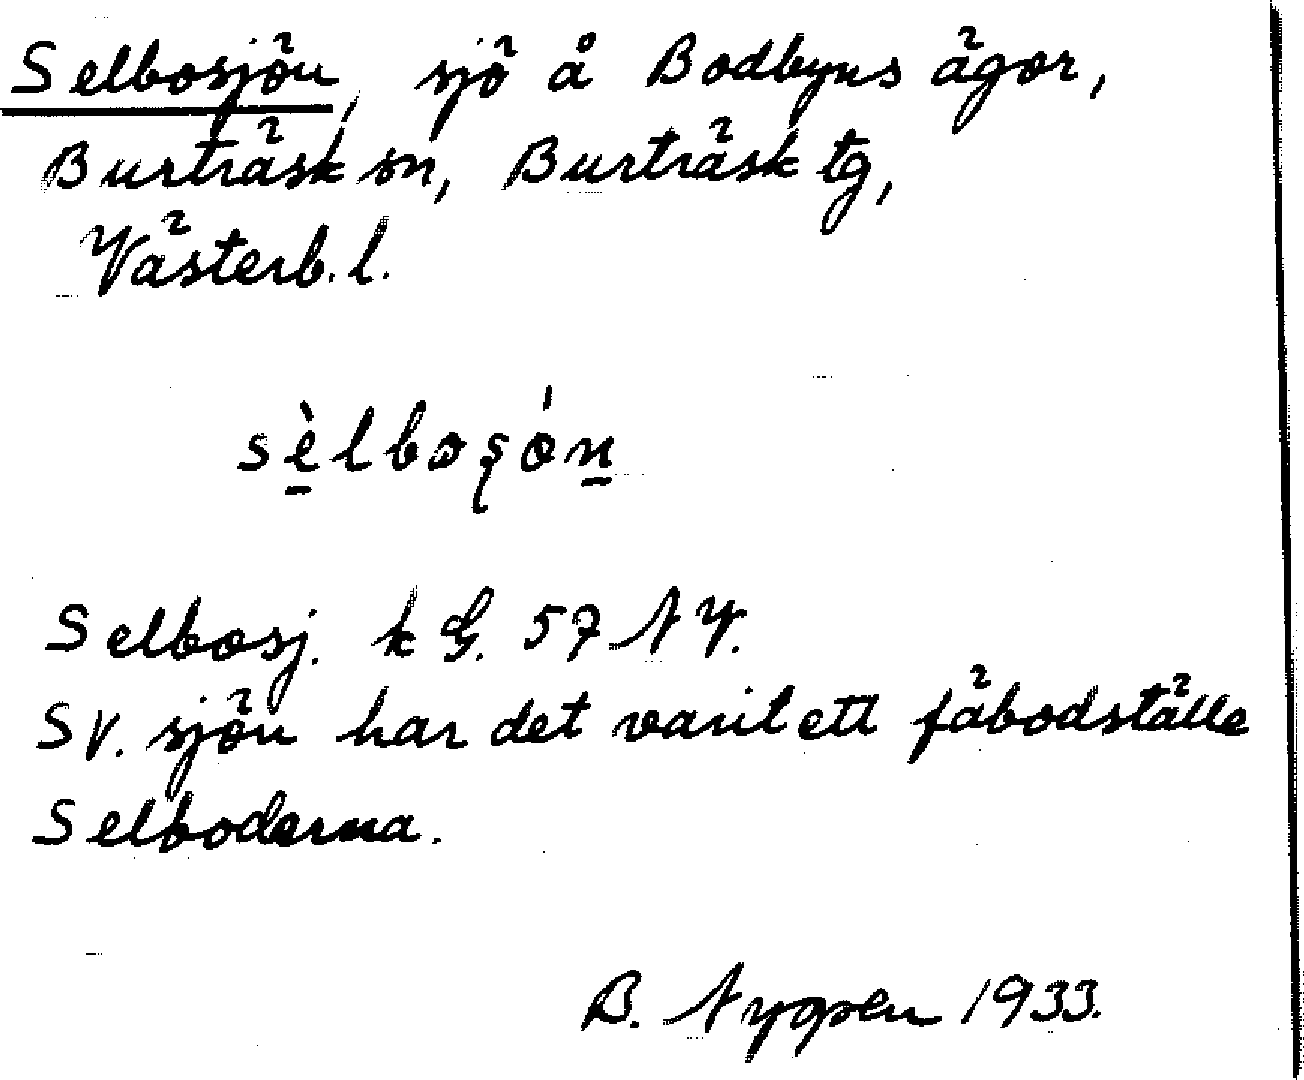 Selbosjön, sjö å Bodbyns ägor,
Burträsk sn, Burträsk tg,
Västerb. l.
sè̱lbosǫ́ṉ
Selbosj. k G. 57 N V.
SV. sjön har det varit ett fäbodställe
Selboderna.
B. Nygren 1933.